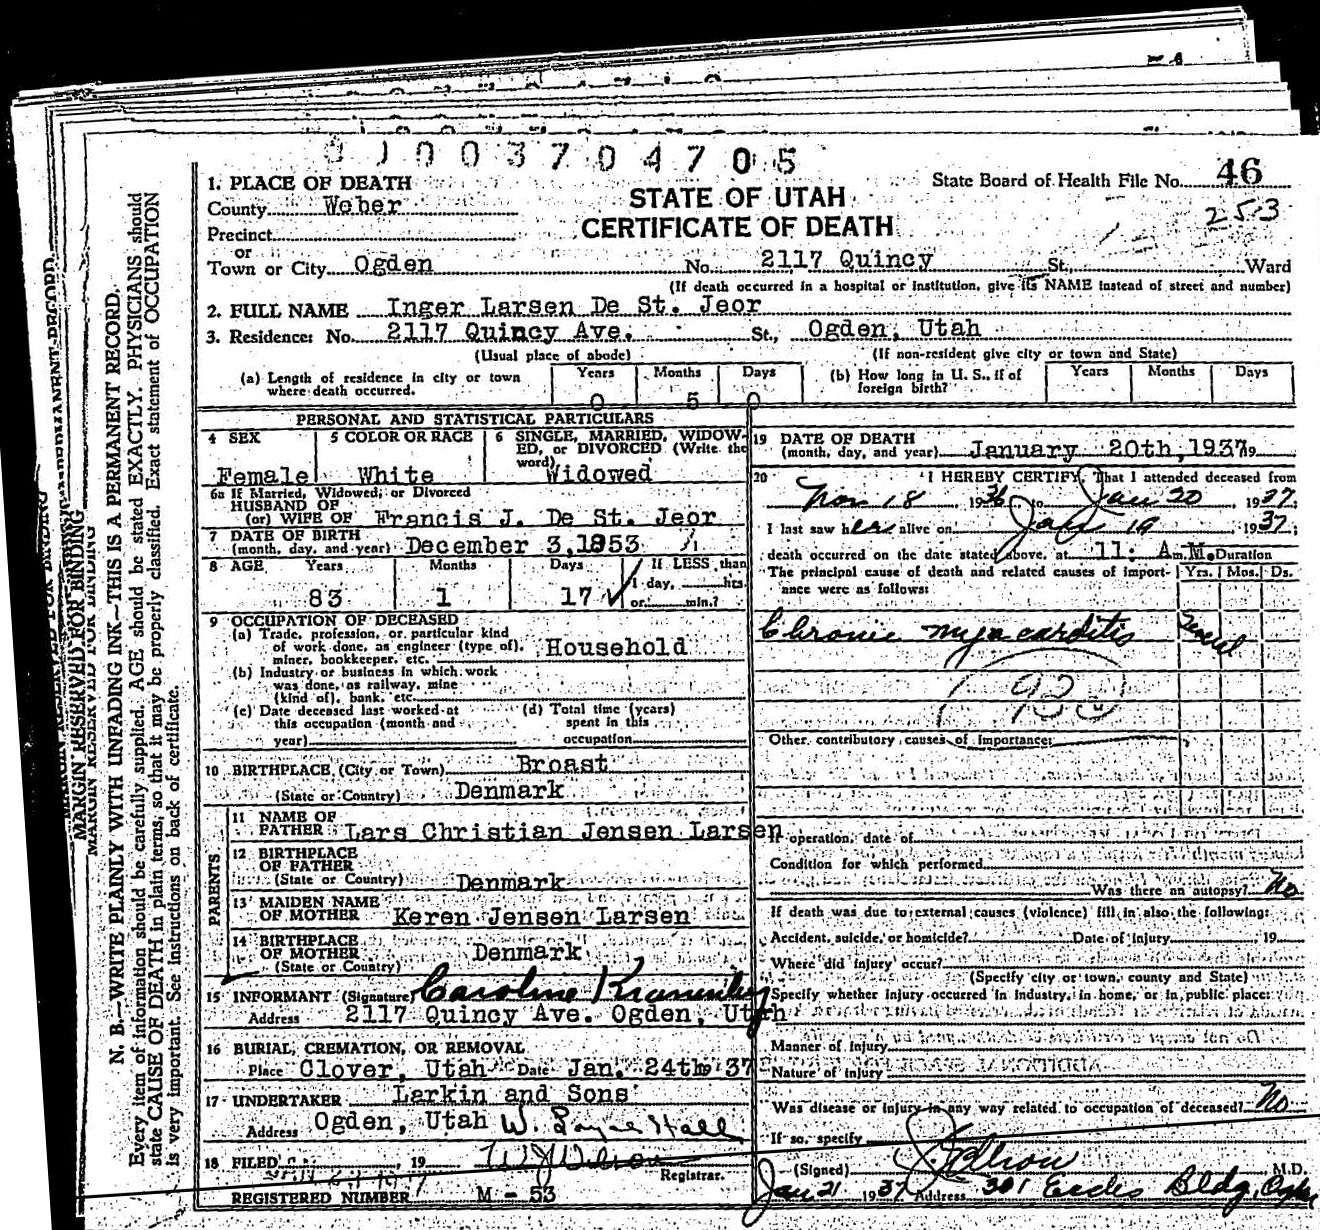 0 0 0 3 7 0 4 7 0 5
State Board of Health File No. 46
253
STATE OF UTAH
CERTIFICATE OF DEATH
1. PLACE OF DEATH
County Weber
Precinct
or
Town or City Ogden No. 2117 Quincy St., Ward
(If death occurred in a hospital or institution, give its NAME instead of street and number)
2. FULL NAME Inger Larsen De St. Jeor
3. Residence: No. 2117 Quincy Ave. St., Ogden, Utah
(Usual place of abode) (If non-resident give city or town and State)
(a) Length of residence in city or town where death occurred. Years 0 Months 5 Days 0
(b) How long in U. S., if of foreign birth? Years Months Days
PERSONAL AND STATISTICAL PARTICULARS
4 SEX Female
5 COLOR OR RACE White
6 SINGLE, MARRIED, WIDOWED, or DIVORCED (Write the word) Widowed
6a If Married, Widowed, or Divorced
HUSBAND OF
(or) WIFE OF Francis J. De St. Jeor
7 DATE OF BIRTH
(month, day, and year) December 3,1853
8 AGE Years 83 Months 1 Days 17 If LESS than 1 day, hrs. or min.?
9 OCCUPATION OF DECEASED
(a) Trade, profession, or particular kind
of work done, as engineer (type of), Household
miner, bookkeeper, etc.
(b) Industry or business in which work
was done, as railway, mine
(kind of), bank, etc.
(c) Date deceased last worked at
this occupation (month and
year)
(d) Total time (years)
spent in this
occupation
10 BIRTHPLACE (City or Town) Broast
(State or Country) Denmark
PARENTS
11 NAME OF
FATHER Lars Christian Jensen Larsen
12 BIRTHPLACE
OF FATHER
(State or Country) Denmark
13 MAIDEN NAME
OF MOTHER Keren Jensen Larsen
14 BIRTHPLACE
OF MOTHER Denmark
(State or Country)
15 INFORMANT (Signature) Caroline
Address 2117 Quincy Ave. Ogden, Utah
16 BURIAL, CREMATION, OR REMOVAL
Place Clover, Utah Date Jan. 24th 19 37
17 UNDERTAKER Larkin and Sons
Address Ogden, Utah W. Hall
18 FILED , 19 W J Wilson
Registrar.
REGISTERED NUMBER M - 53
19 DATE OF DEATH
(month, day, and year) January 20th,1937
20 I HEREBY CERTIFY, That I attended deceased from
Nov 18, 1936, to Jan 20, 1937.
I last saw her alive on Jan 19 1937;
death occurred on the date stated above, at 11: A.M. Duration
The principal cause of death and related causes of importance were as follows: Yrs. Mos. Ds.
Chronic myocarditis Several
Other contributory causes of importance:
If operation, date of
Condition for which performed
Was there an autopsy? No
If death was due to external causes (violence) fill in also the following:
Accident, suicide, or homicide? Date of injury , 19
Where did injury occur?
(Specify city or town, county and State)
Specify whether injury occurred in industry, in home, or in public place:
Manner of injury
Nature of injury
Was disease or injury in any way related to occupation of deceased? No
If so, specify
(Signed) M.D.
Jan 21 1937 Address 301 Eccles Bldg, Ogden
MARGIN RESERVED FOR BINDING
N. B.—WRITE PLAINLY WITH UNFADING INK—THIS IS A PERMANENT RECORD.
Every item of information should be carefully supplied. AGE should be stated EXACTLY. PHYSICIANS should
state CAUSE OF DEATH in plain terms, so that it may be properly classified. Exact statement of OCCUPATION
is very important. See instructions on back of certificate.